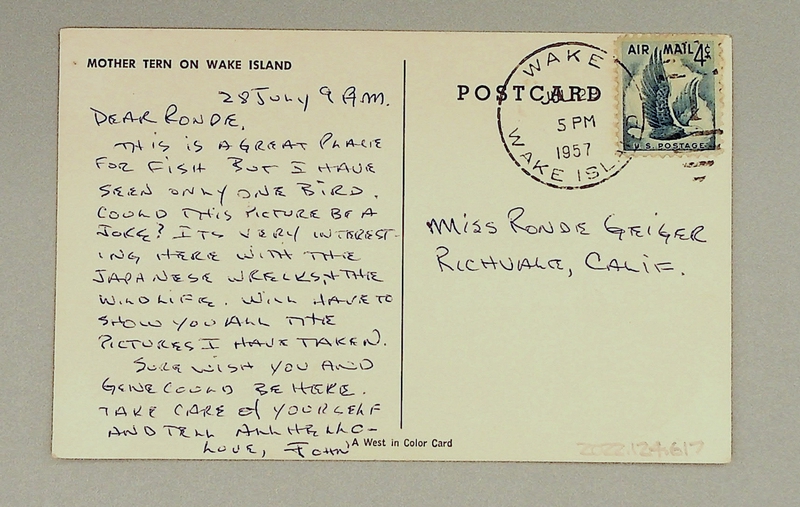 MOTHER TERN ON WAKE ISLAND
28 JULY 9 A.M.
DEAR RONDE,
THIS IS A GREAT PLACE
FOR FISH BUT I HAVE
SEEN ONLY ONE BIRD.
COULD THIS PICTURE BE A
JOKE? ITS VERY INTEREST-
ING HERE WITH THE
JAPANESE WRECKS, + THE
WILDLIFE. WILL HAVE TO
SHOW YOU ALL THE
PICTURES I HAVE TAKEN.
SURE WISH YOU AND
GENE COULD BE HERE.
TAKE CARE of YOURSELF
AND TELL ALL HELLO-
LOVE, JOHN
A West in Color Card
POSTCARD
WAKE
JUL 29
5 PM
1957
WAKE ISLAND
AIR MAIL 4¢
U.S. POSTAGE
MISS RONDE GEIGER
RICHVALE, CALIF.
2022.124.617